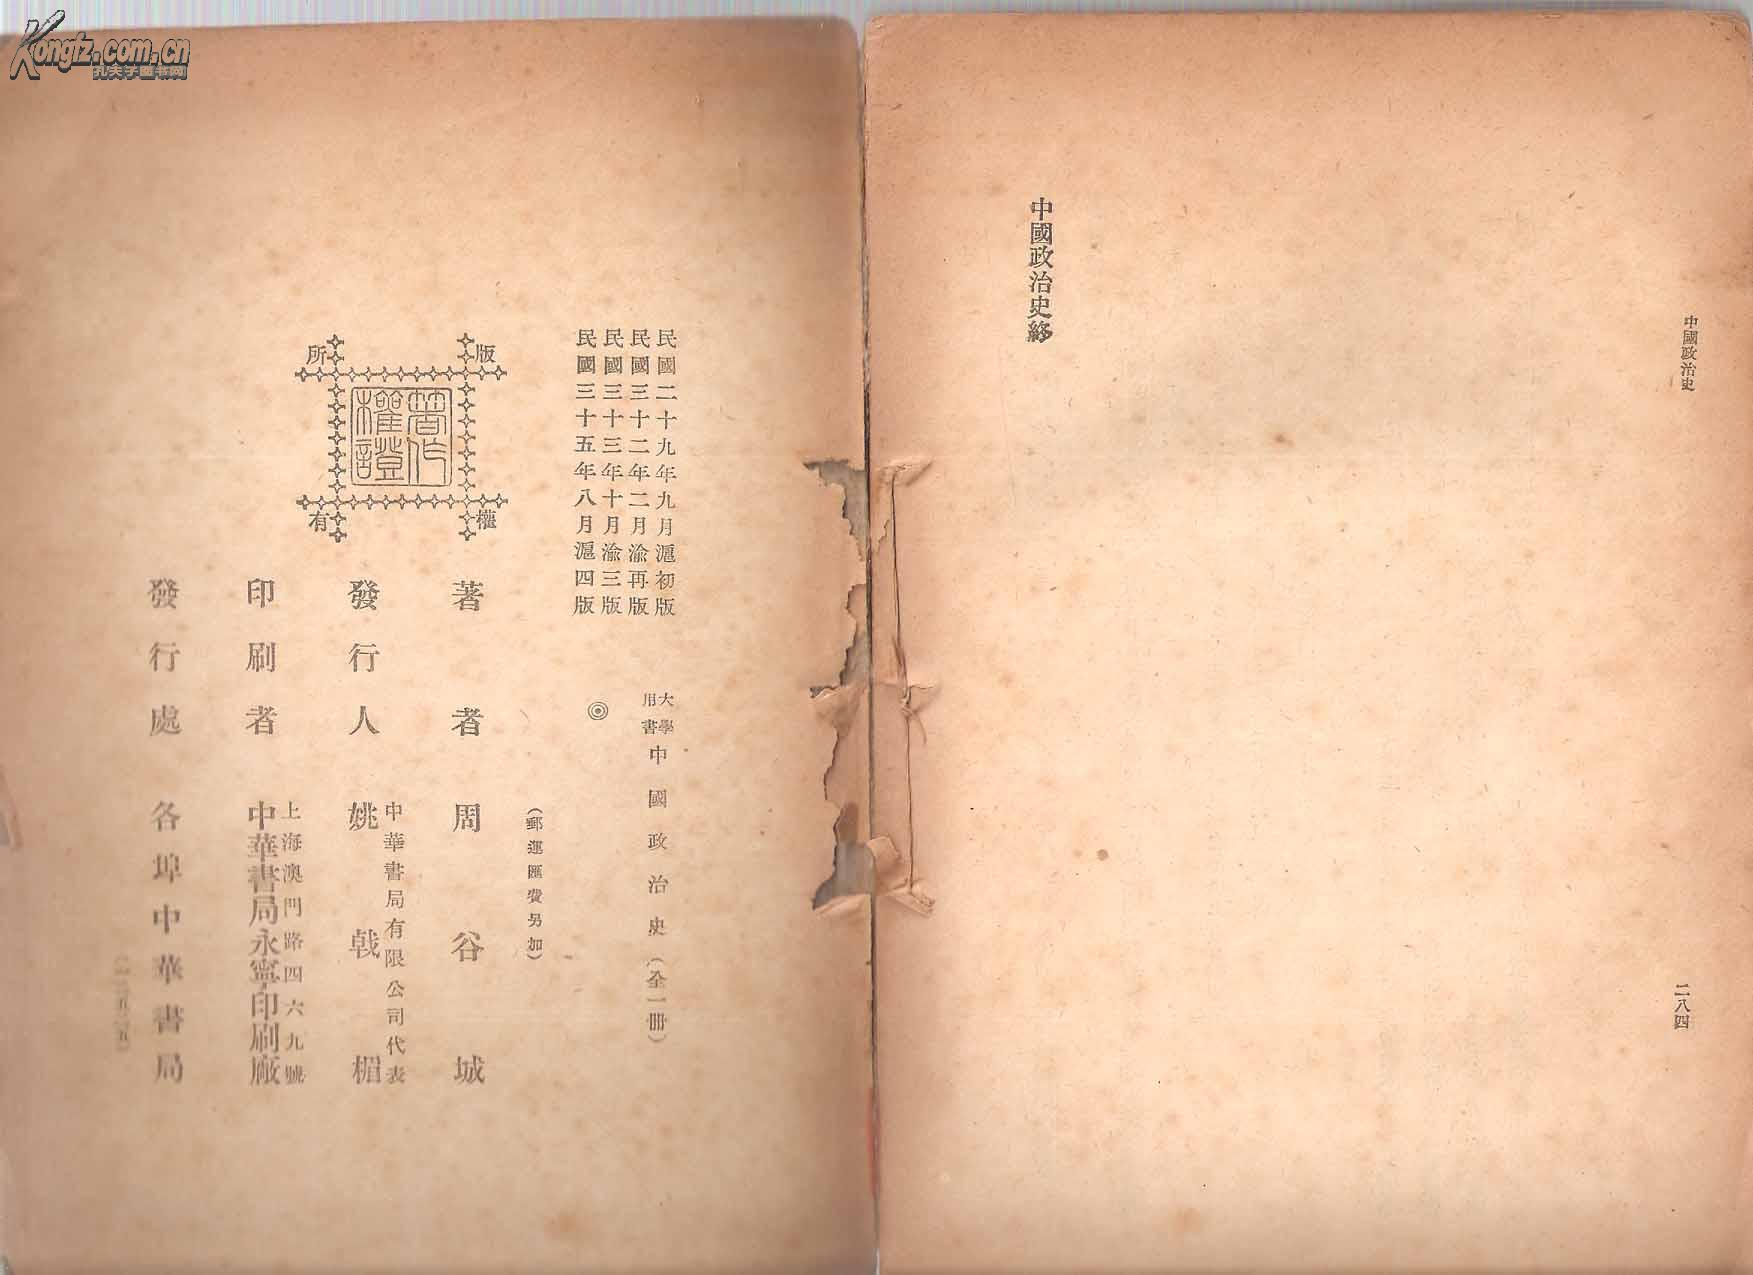 Kongfz.com.cn
孔夫子旧书网
中國政治史
二八四
中國政治史終
民國二十九年九月滬初版
民國三十二年二月渝再版
民國三十三年十月渝三版
民國三十五年八月滬四版
大學用書
中國政治史(全一冊)
◎
(郵運匯費另加)
版權所有
著作權證
著者 周谷城
發行人 中華書局有限公司代表
姚戟楣
印刷者 上海澳門路四六九號
中華書局永寧印刷廠
發行處 各埠中華書局